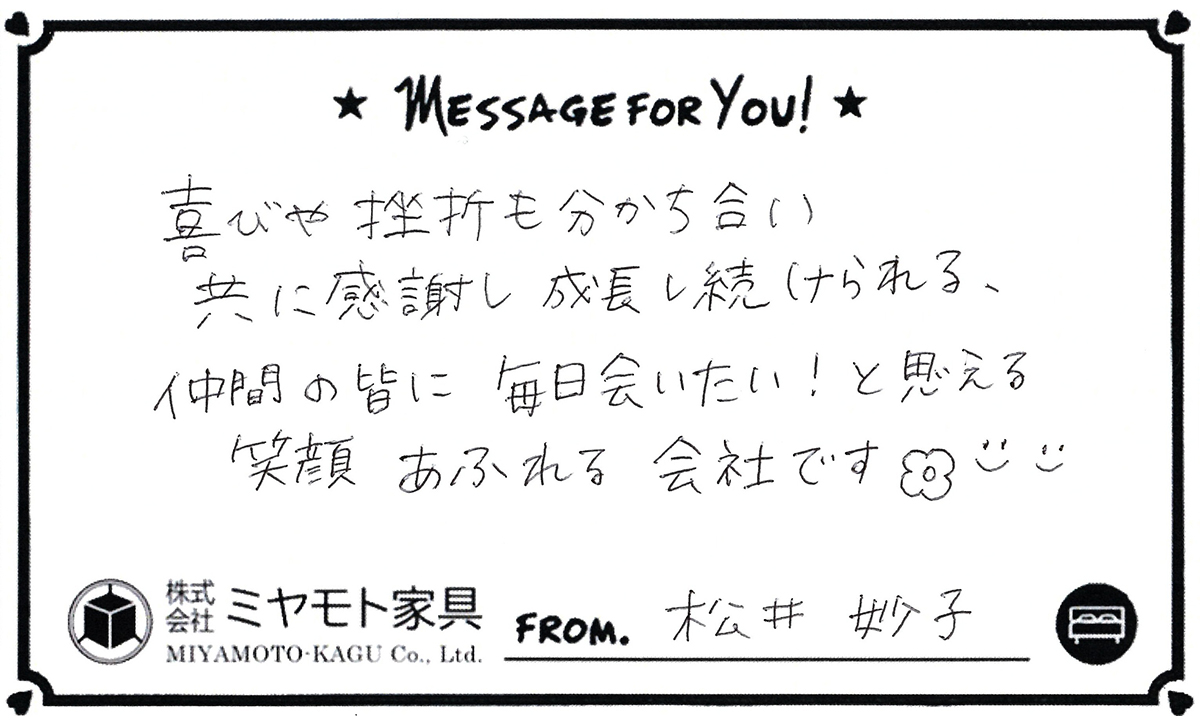 ★ MESSAGE FOR YOU! ★
喜びや挫折も分かち合い
共に感謝し成長し続けられる、
仲間の皆に毎日会いたい！と思える
笑顔あふれる会社です
株式会社 ミヤモト家具
MIYAMOTO-KAGU Co., Ltd.
FROM. 松井 妙子